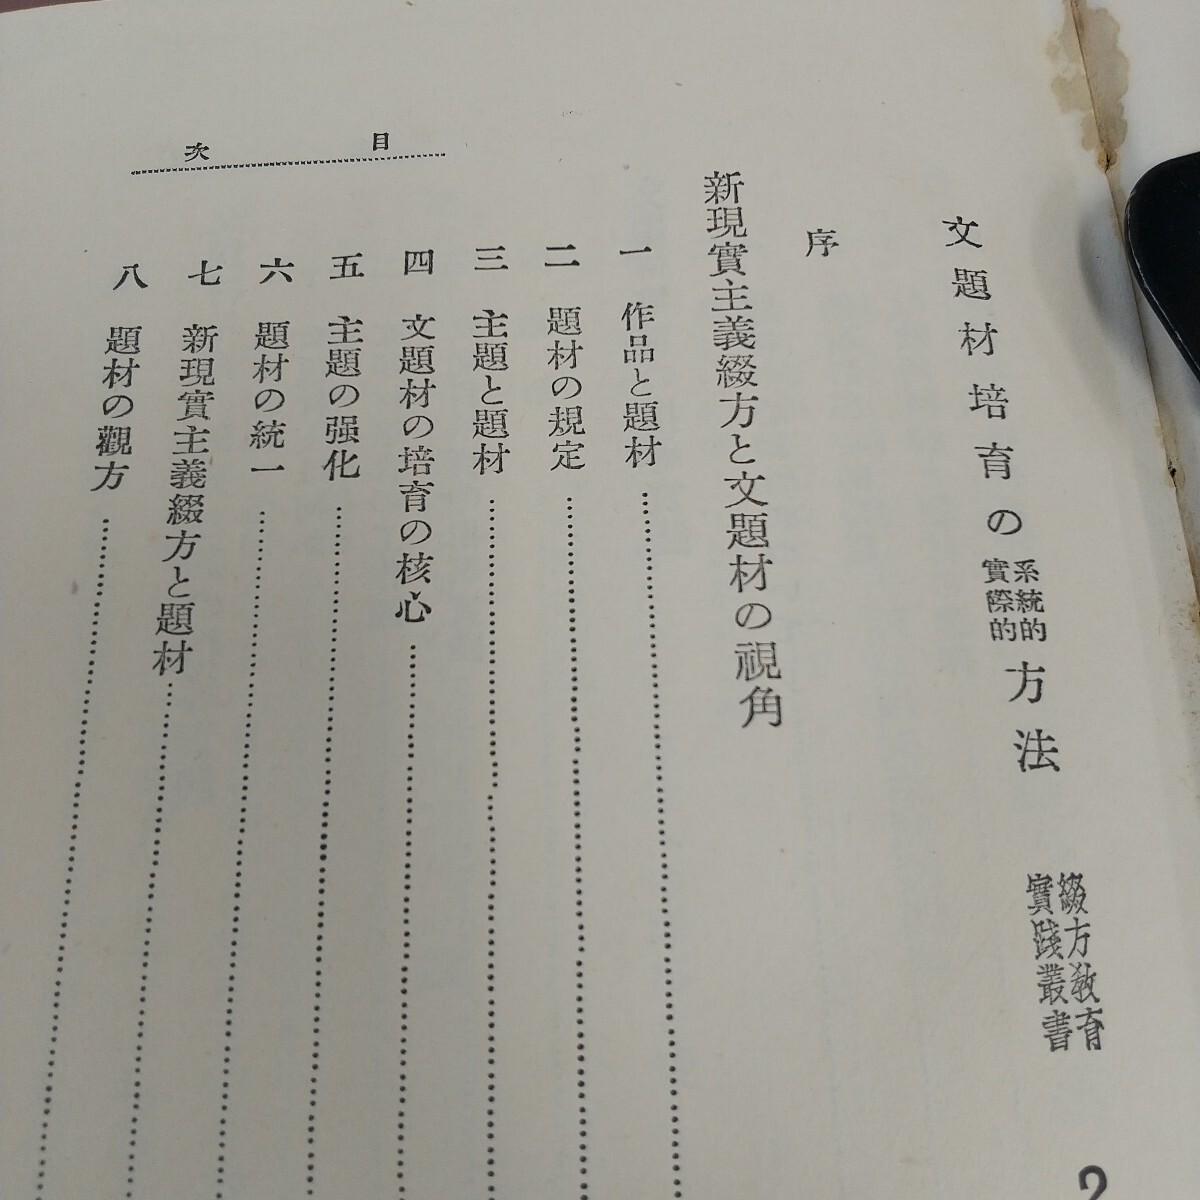 文題材培育の系統的實際的方法
綴方教育
實踐叢書
2
序
新現實主義綴方と文題材の視角
目次
一 作品と題材
二 題材の規定
三 主題と題材
四 文題材の培育の核心
五 主題の强化
六 題材の統一
七 新現實主義綴方と題材
八 題材の觀方